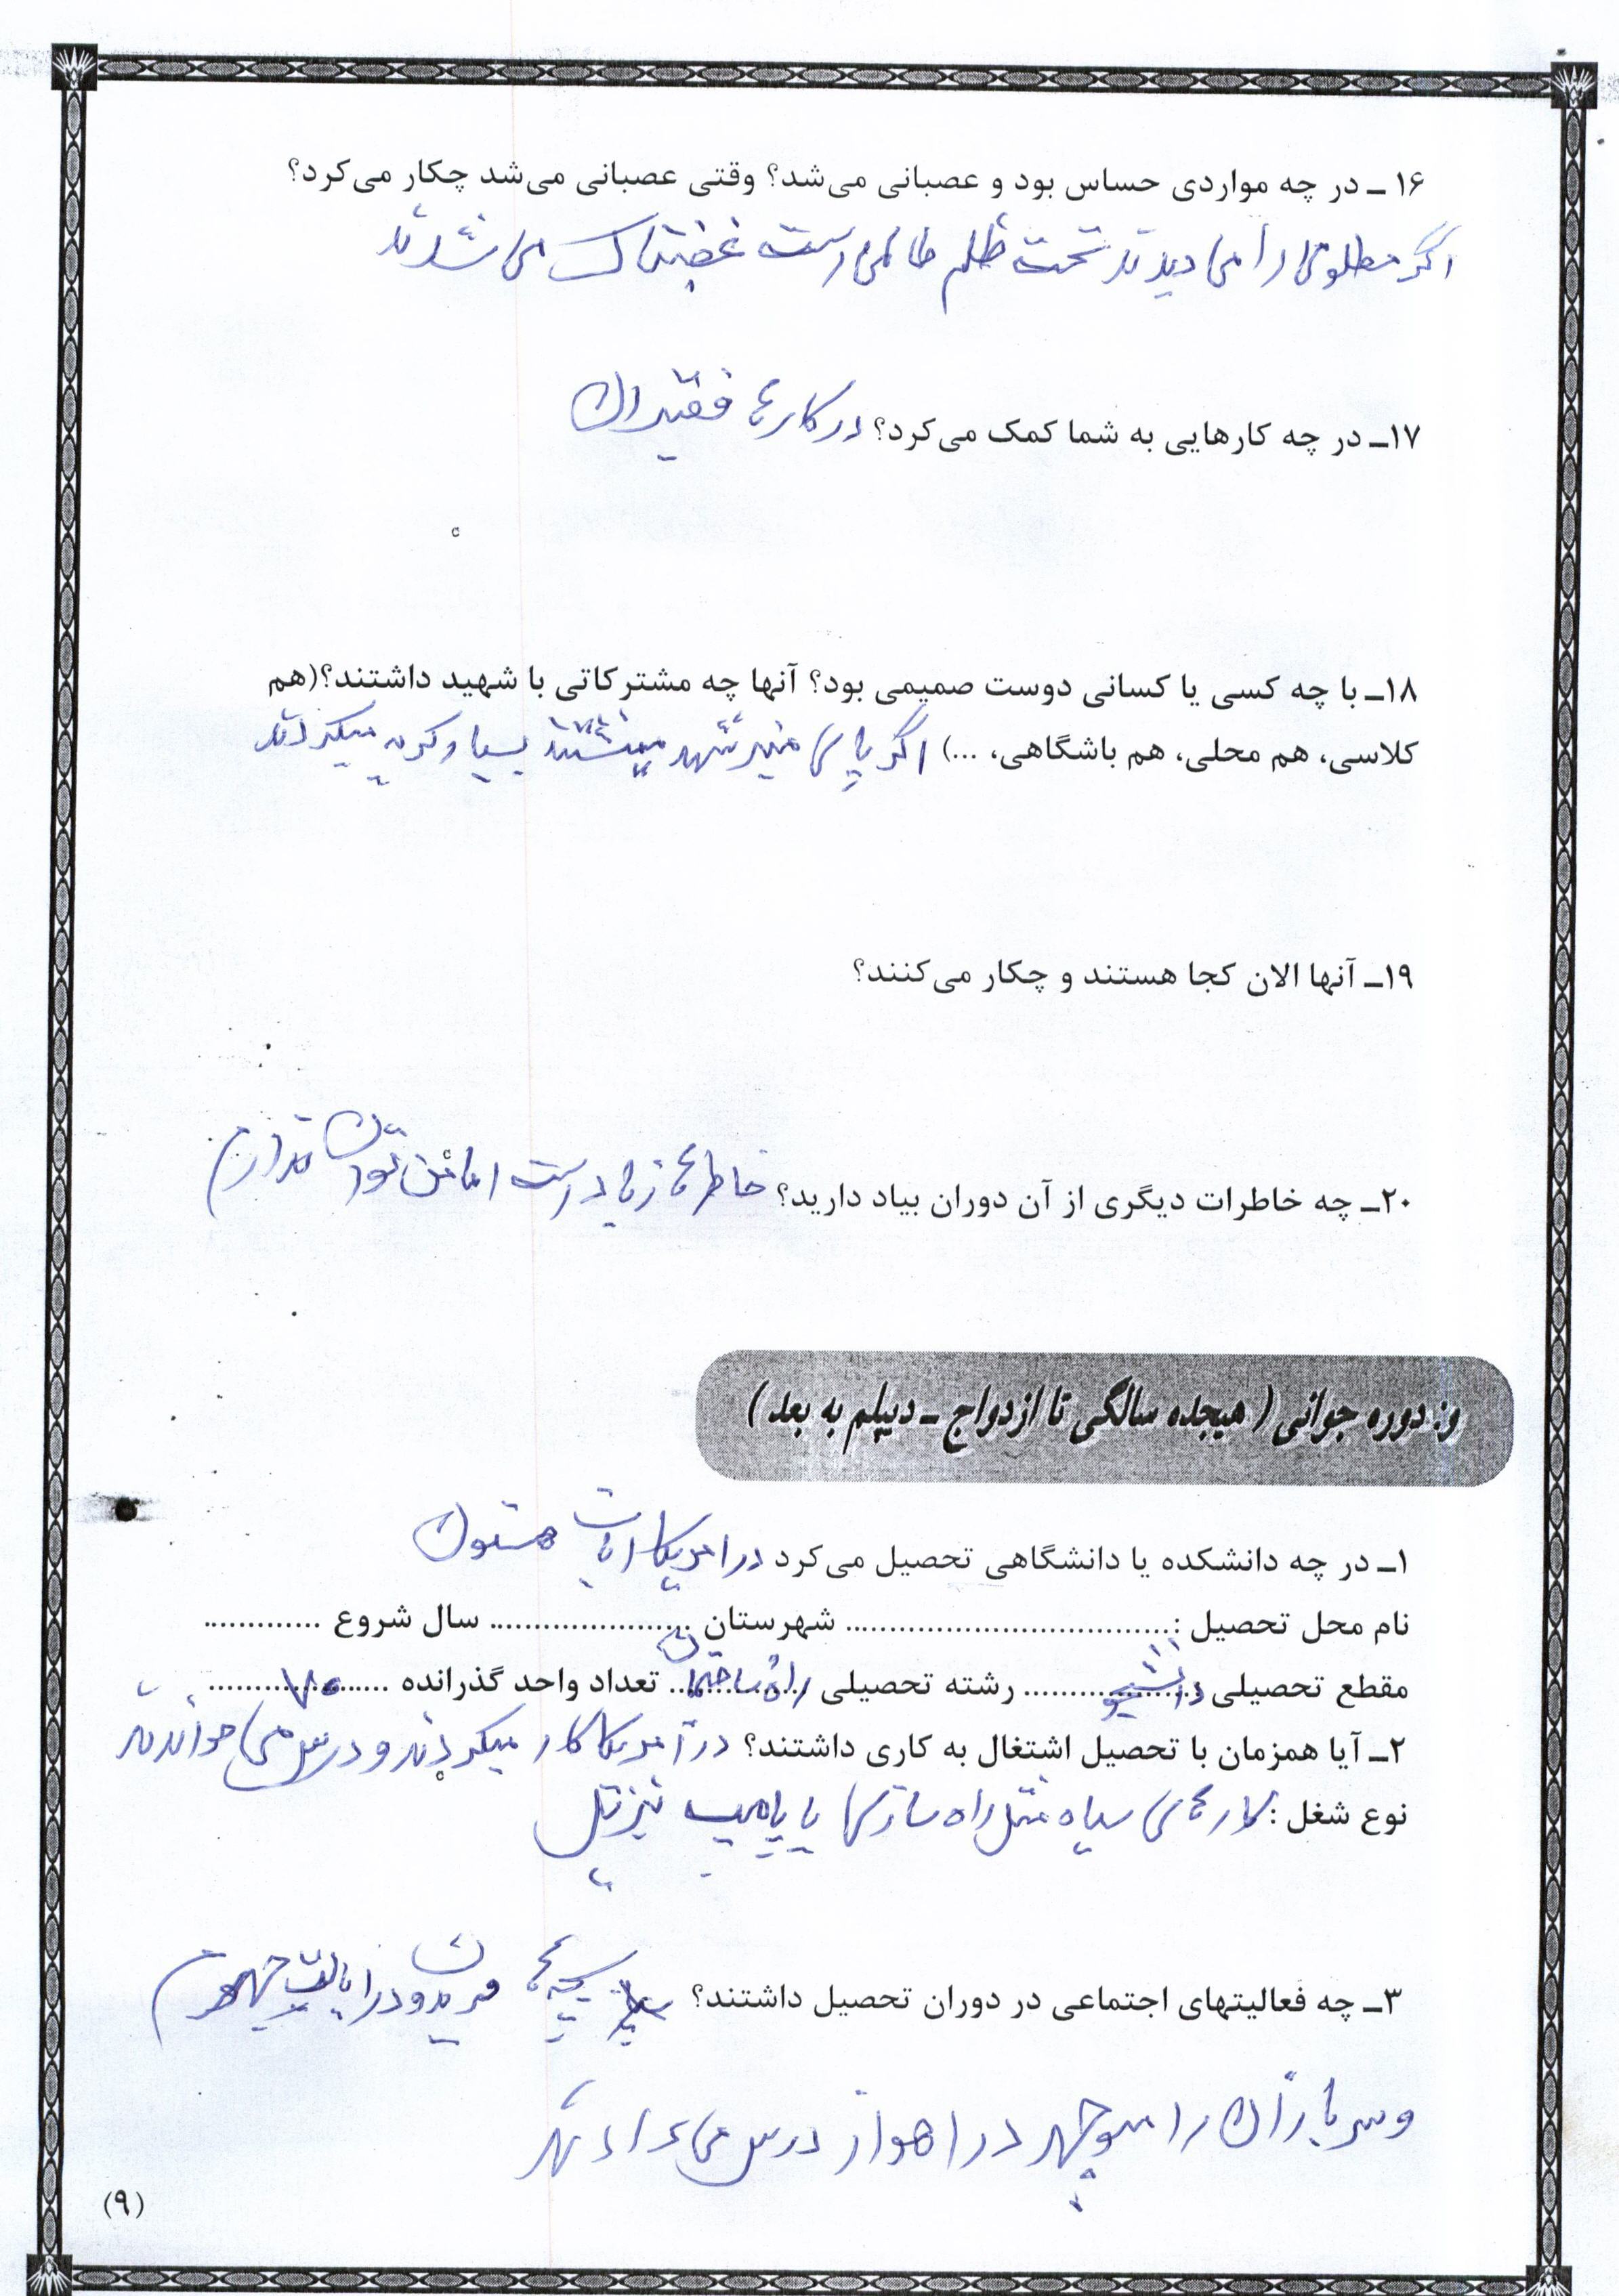 ۱۶ ـ در چه مواردی حساس بود و عصبانی می‌شد؟ وقتی عصبانی می‌شد چکار می‌کرد؟
اگر مظلومی را می دیدند تحت ظلم ظالمی است غضبناک می شدند
۱۷ـ در چه کارهایی به شما کمک می‌کرد؟ در کارها فقیران
۱۸ـ با چه کسی یا کسانی دوست صمیمی بود؟ آنها چه مشترکاتی با شهید داشتند؟(هم
کلاسی، هم محلی، هم باشگاهی، ...) اگر پای منبر شهر مینشتند بسیار گریه میکردند
۱۹ـ آنها الان کجا هستند و چکار می‌کنند؟
۲۰ـ چه خاطرات دیگری از آن دوران بیاد دارید؟ خاطرها زیاد است اما من توان ندارم
و: دوره جوانی ( هیجده سالگی تا ازدواج ـ دیپلم به بعد )
۱ـ در چه دانشکده یا دانشگاهی تحصیل می‌کرد در امریکا
نام محل تحصیل :.................................... شهرستان ...................... سال شروع .............
مقطع تحصیلی دانشجو رشته تحصیلی راه ساختمان تعداد واحد گذرانده ۷۰
۲ـ آیا همزمان با تحصیل اشتغال به کاری داشتند؟ در آمریکا کار میکردند و درس می خواندند
نوع شغل : کارهای سیاه مثل راه سازی یا پامپ
۳ـ چه فعالیتهای اجتماعی در دوران تحصیل داشتند؟
و سربازان را در اهواز درس می دادند
(۹)